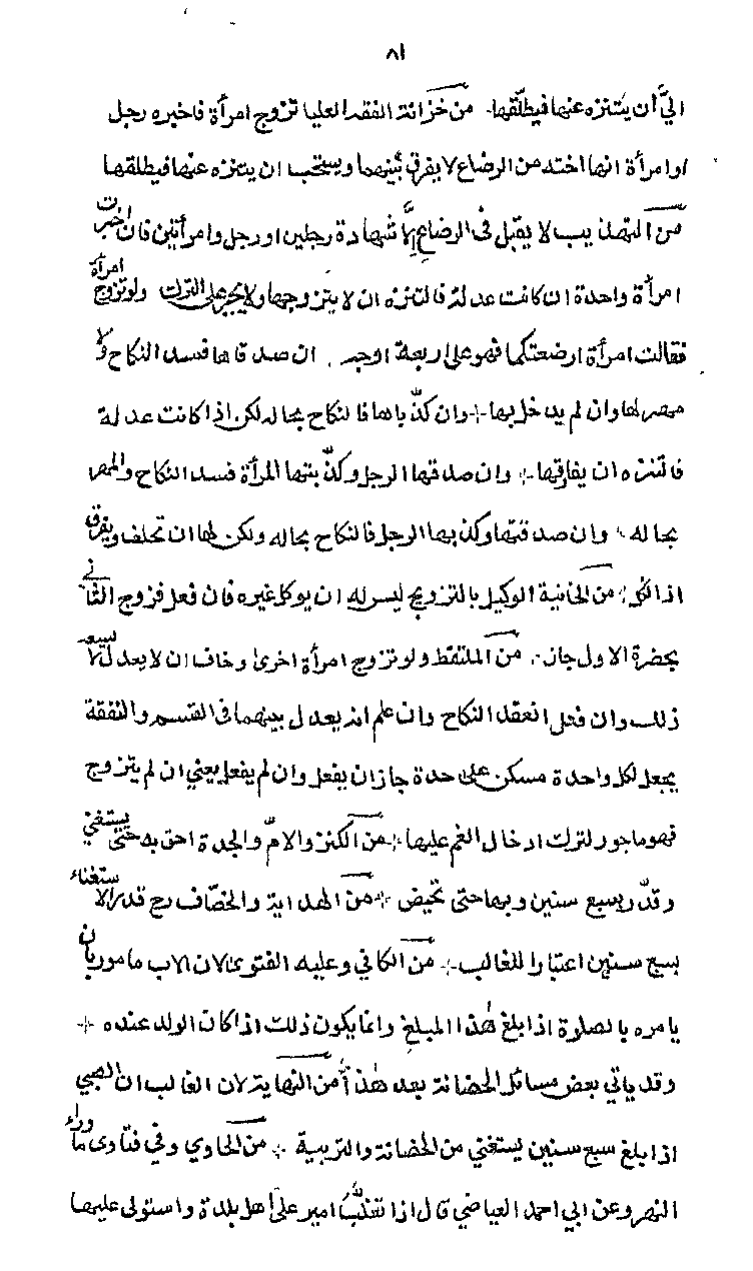 ٨١
اليَّ أن يتنزه عنها فيطلّقها من خزانة الفقه العليا تزوج امرأة فاخبره رجل
او امرأة انها اخته من الرضاع لا يفرق بينهما ويستحب ان يتنزه عنها فيطلقها
من التهذيب لا يقبل في الرضاع إلّا شهادة رجلين او رجل وامرأتين فان اخبرت
امرأة واحدة ان كانت عدلة فالتنزه ان لا يتزوجها ولا يجبر على الترك ولو تزوج امرأة
فقالت امرأة ارضعتكما فهو على اربعة اوجه ان صدقاها فسد النكاح ولا
مهر لها وان لم يدخل بها وان كذّباها فالنكاح بحاله لكن اذا كانت عدلة
فالتنزه ان يفارقها وان صدقها الرجل وكذّبتها المرأة فسد النكاح والمهر
بحاله وان صدقتها وكذبها الرجل فالنكاح بحاله ولكن لها ان تحلف ويفرق
اذا نكل من الخانية الوكيل بالتزويج ليس له ان يوكل غيره فان فعل فزوج الثاني
بحضرة الاول جاز من الملتقط ولو تزوج امرأة اخرى وخاف ان لا يعدل لا يسعه
ذلك وان فعل انعقد النكاح وان علم انه يعدل بينهما في القسم والنفقة
يجعل لكل واحدة مسكن على حدة جاز ان يفعل وان لم يفعل يعني ان لم يتزوج
فهو ماجور لترك ادخال الغم عليها من الكنز والامّ والجدة احق به حتى يستغني
وقدّر بسبع سنين وبها حتى تحيض من الهداية والخصّاف رح قدر الاستغناء
بسبع سنين اعتبارا للغالب من الكافي وعليه الفتوى لان الاب مامور بان
يامره بالصلوة اذا بلغ هذا المبلغ وانما يكون ذلك اذا كان الولد عنده
وقد ياتي بعض مسائل الحضانة بعد هذا من النهاية لان الغالب ان الصبي
اذا بلغ سبع سنين يستغني من الحضانة والتربية من الحاوي وفي فتاوى ما وراء
النهر وعن ابي احمد العياضي قال اذا تغلّب امير على أهل بلدة واستولى عليها